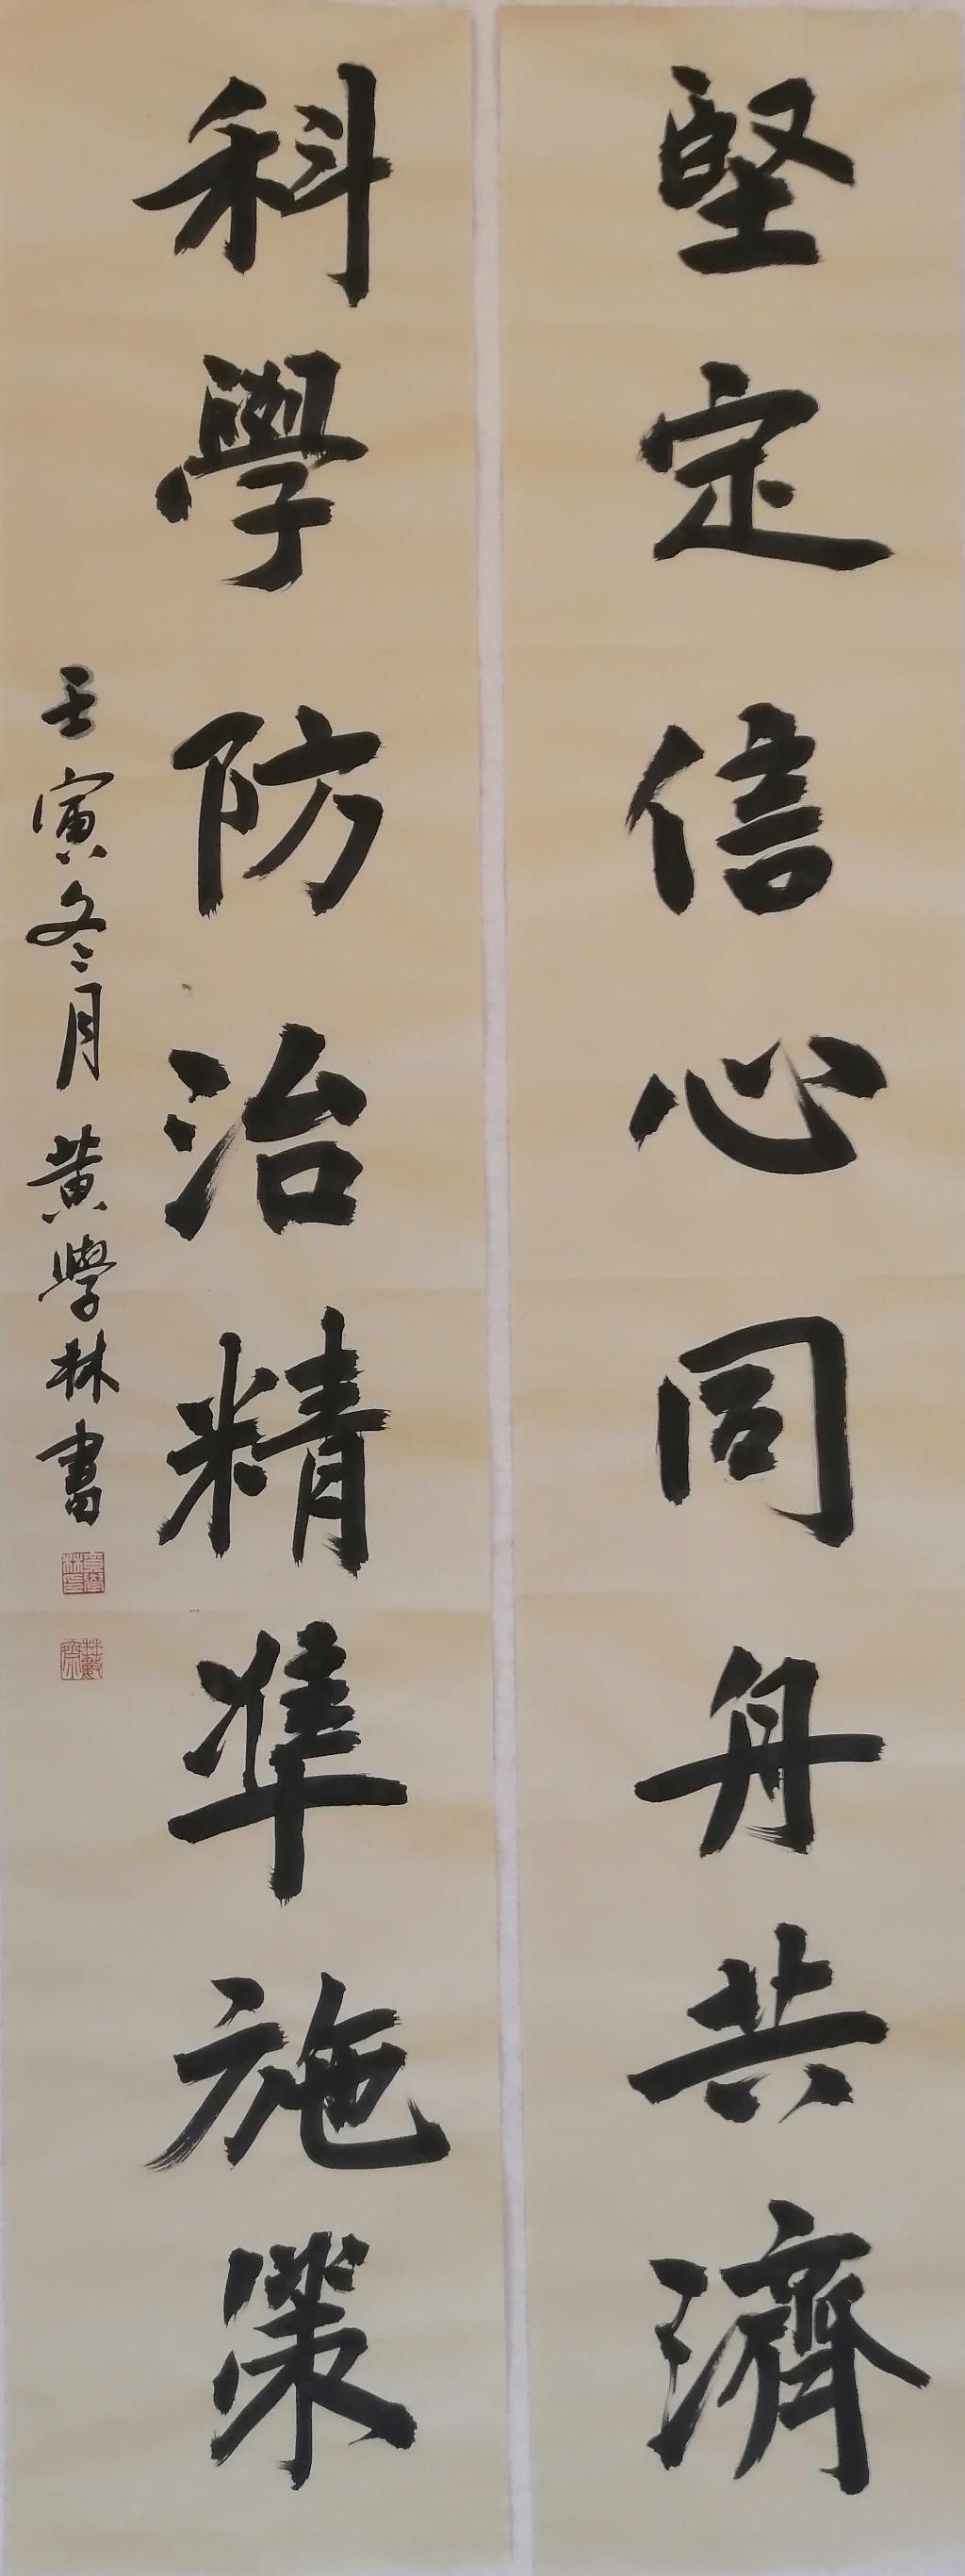 堅定信心同舟共濟
科學防治精準施策
壬寅冬月黄學林書
黄學林印